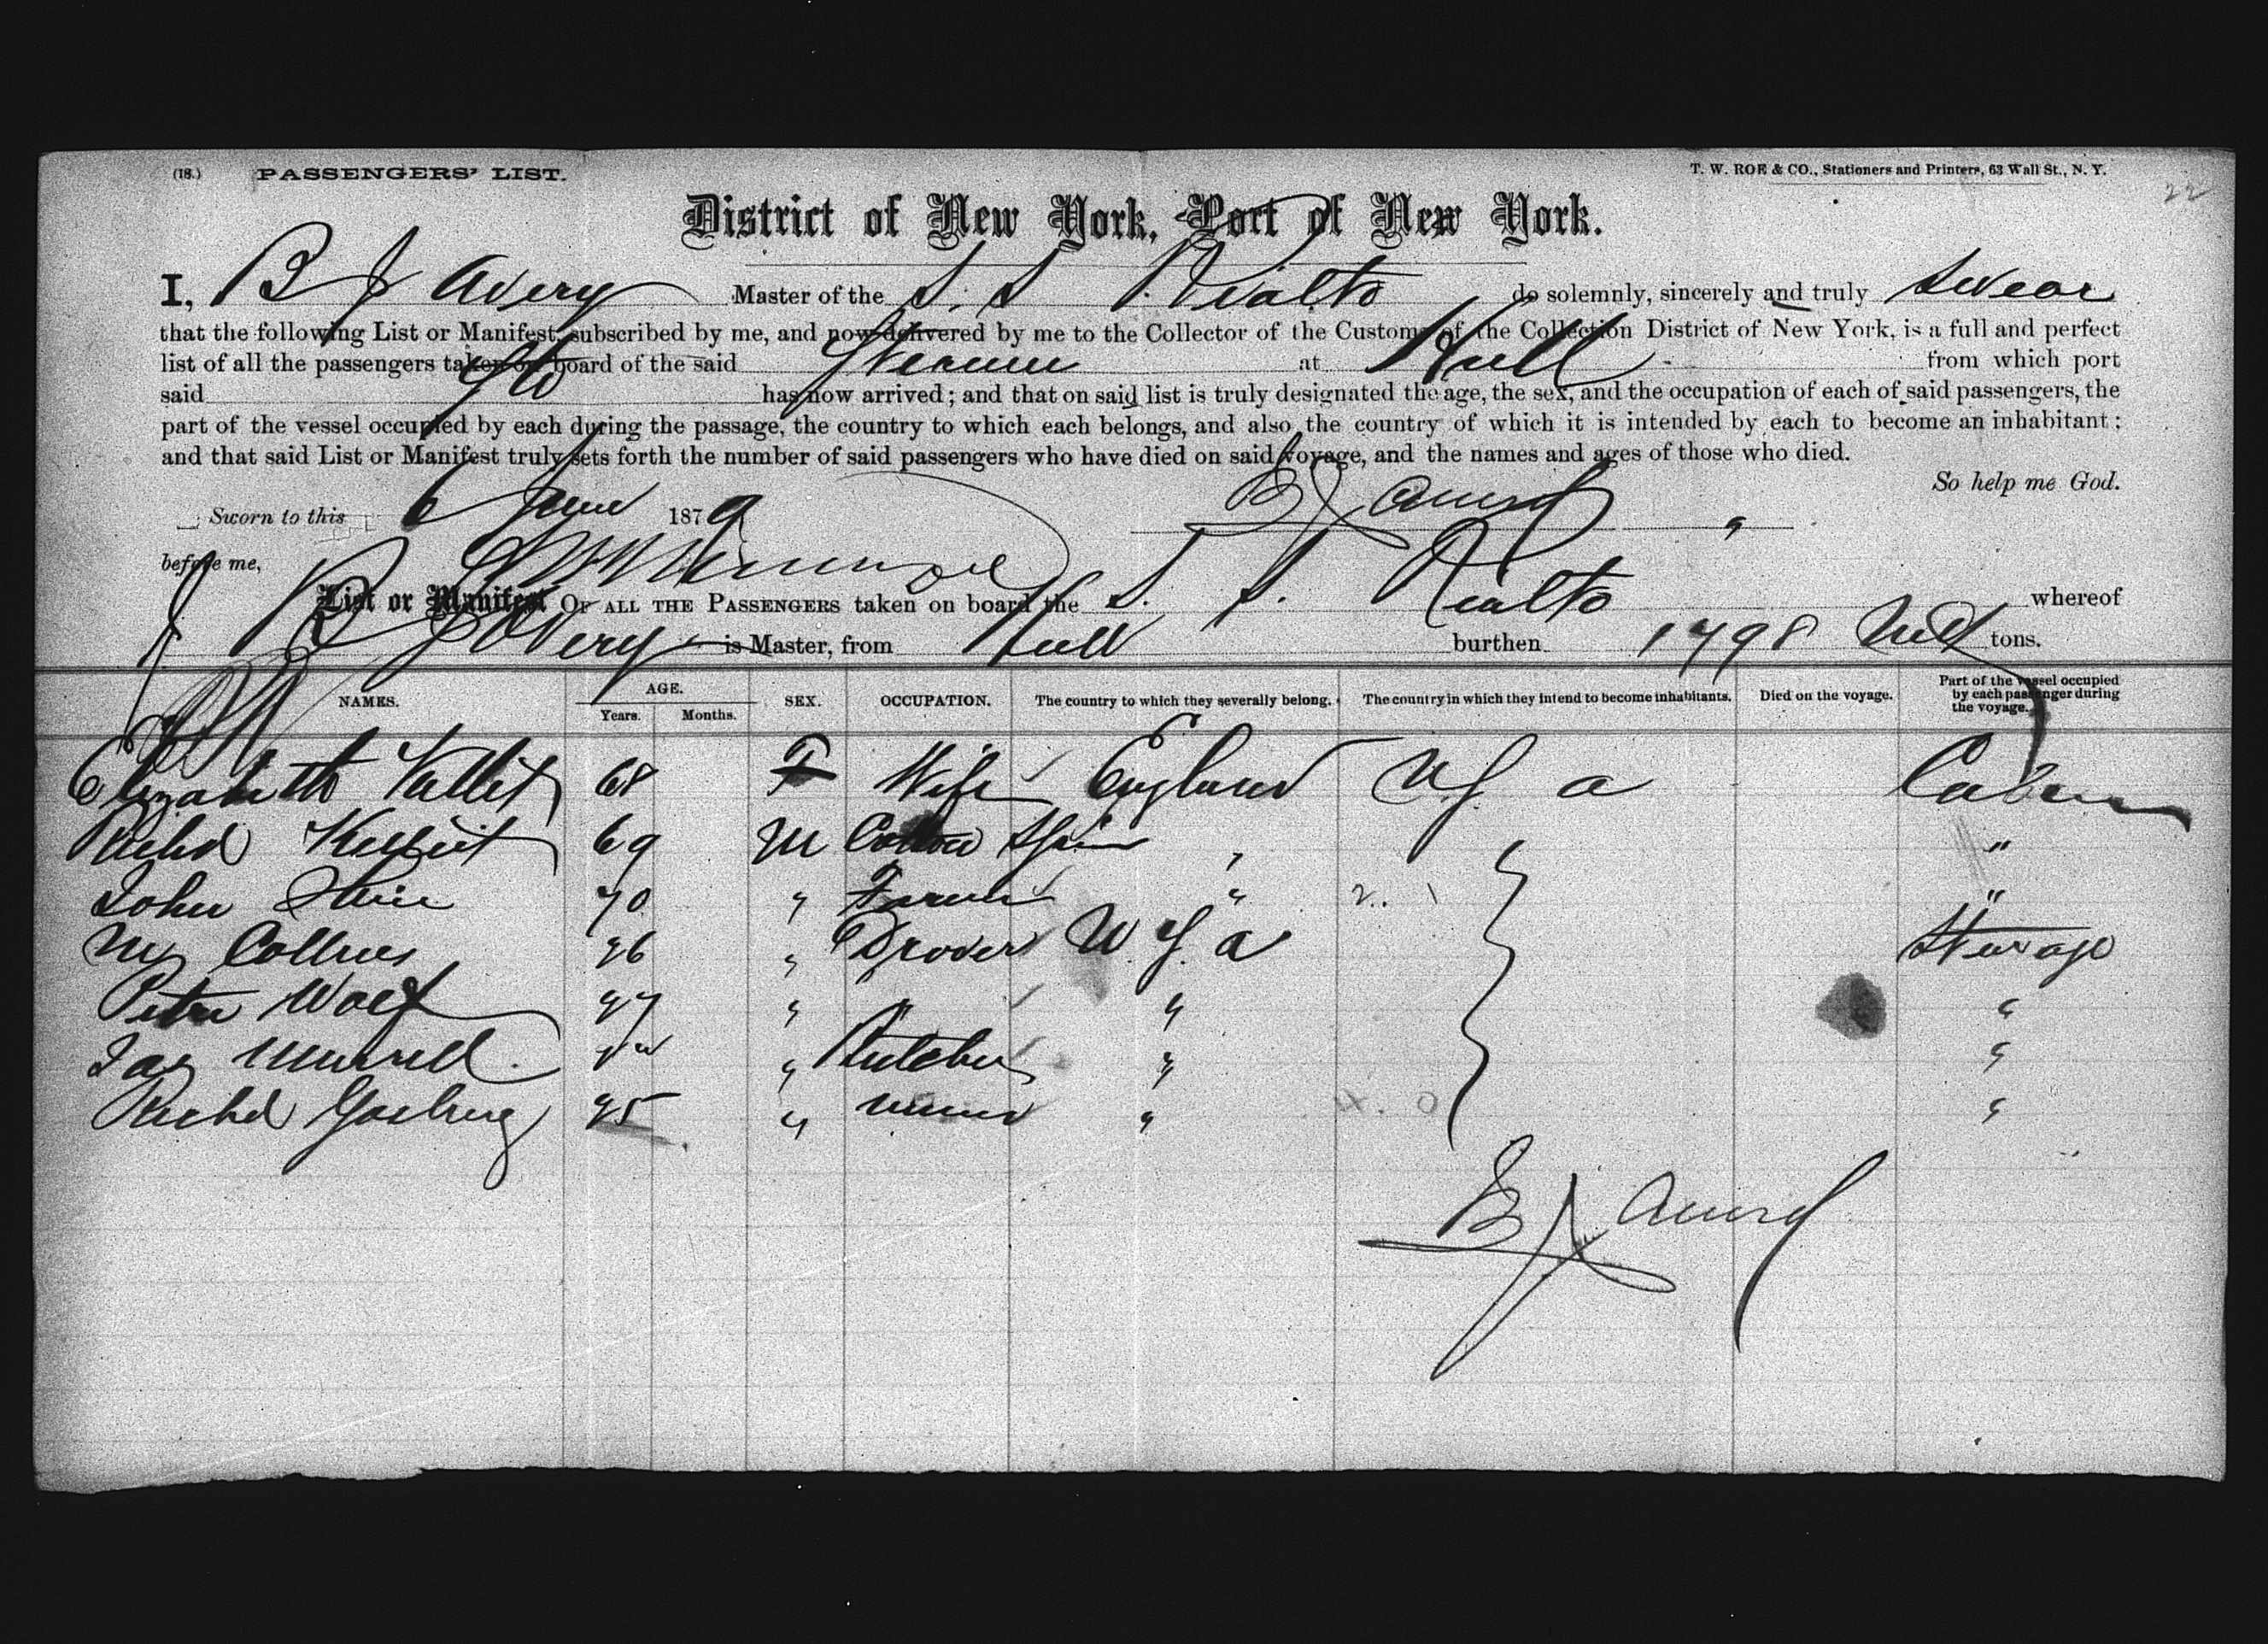 (18.) PASSENGERS' LIST.
T. W. ROE & CO., Stationers and Printers, 63 Wall St., N. Y.
22
District of New York, Port of New York.
I, B J Avery Master of the S. S Rialto do solemnly, sincerely and truly swear
that the following List or Manifest, subscribed by me, and now delivered by me to the Collector of the Customs of the Collection District of New York, is a full and perfect
list of all the passengers taken on board of the said Steamer at Hull from which port
said has now arrived; and that on said list is truly designated the age, the sex, and the occupation of each of said passengers, the
part of the vessel occupied by each during the passage, the country to which each belongs, and also the country of which it is intended by each to become an inhabitant;
and that said List or Manifest truly sets forth the number of said passengers who have died on said voyage, and the names and ages of those who died.
So help me God.
Sworn to this 6 June 1879
B J Avery
before me,
List or Manifest OF ALL THE PASSENGERS taken on board the S. S. Rialto whereof
B J Avery is Master, from Hull burthen 1798 tons.
NAMES. AGE. Years. Months. SEX. OCCUPATION. The country to which they severally belong. The country in which they intend to become inhabitants. Died on the voyage. Part of the vessel occupied by each passenger during the voyage.
Elizabeth 68 F Wife England U S a Cabin
Richd 69 M Cotton "
John 70 " Farmer " "
Collins 26 " Drover U. S. a Steerage
Peter Wolf 27 " " " "
Jas Murrell " Butcher " "
Richd 25 " Miner " "
B J Avery